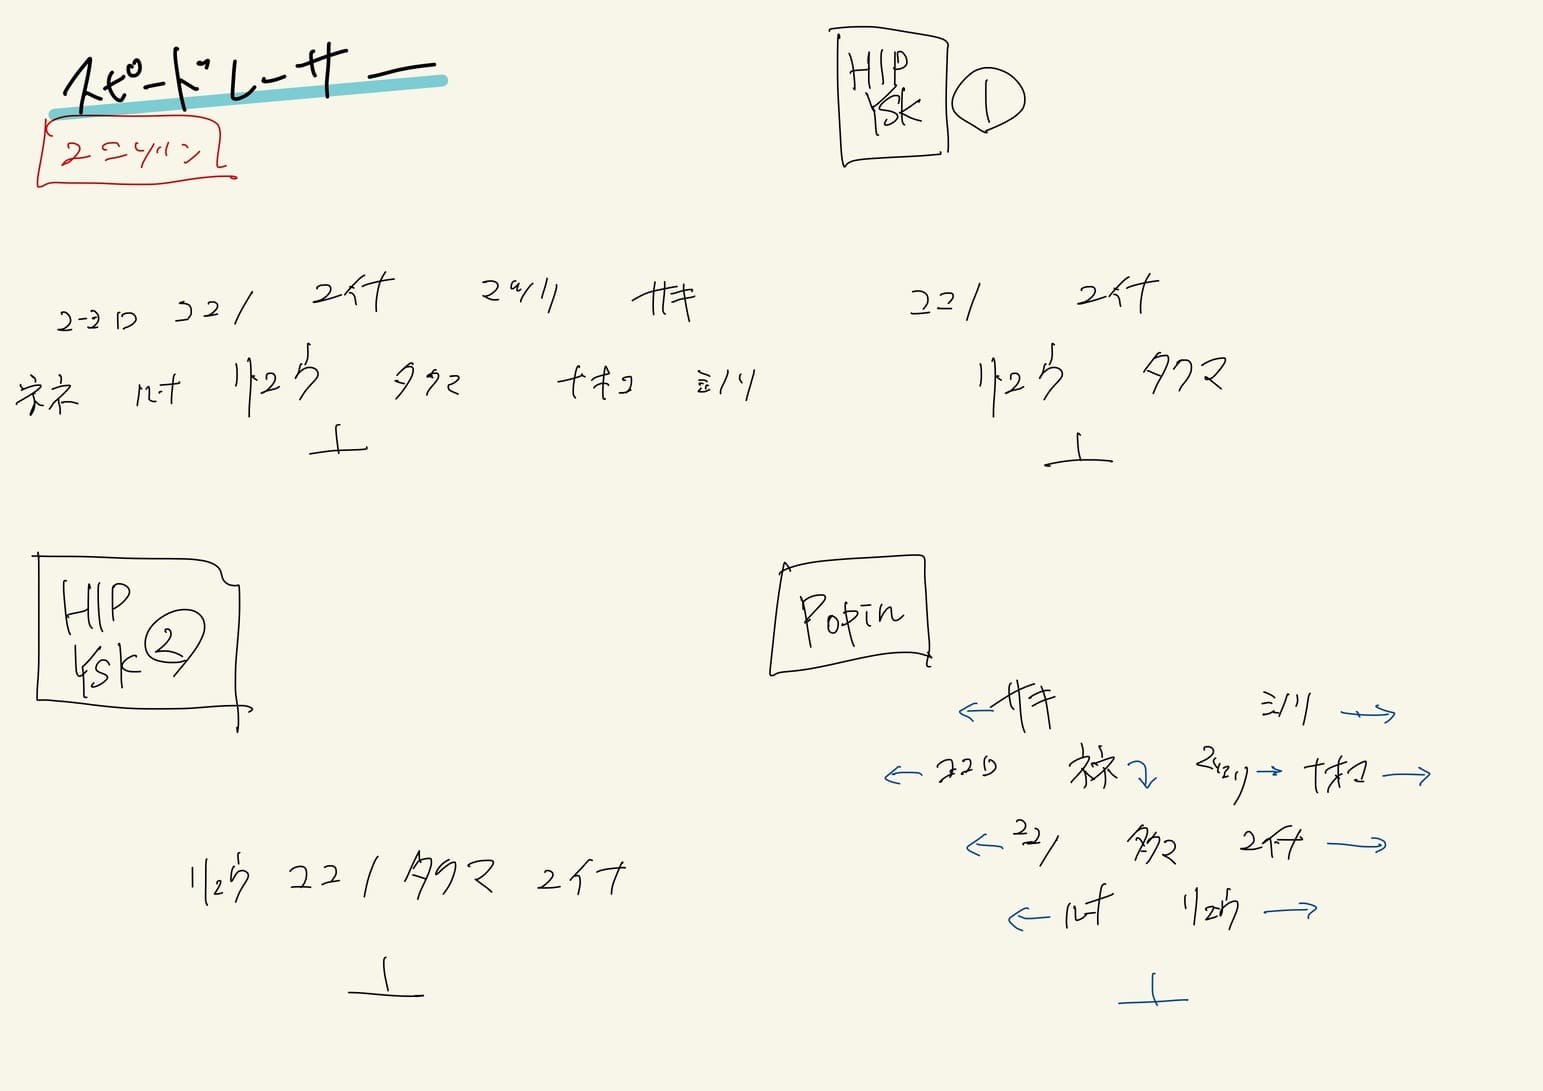 スピードレーサー
ユニゾン
ココロ ココノ ユイナ ユメリ サキ
ネネ ルナ リョウ タクマ ナオコ ミノリ
HIP
YSK ①
ココノ ユイナ
リョウ タクマ
HIP
YSK ②
リョウ ココノ タクマ ユイナ
Popin
←サキ ミノリ→
←ココロ ネネ → ナオコ→
←ココノ タクマ ユイナ→
←ルナ リョウ→